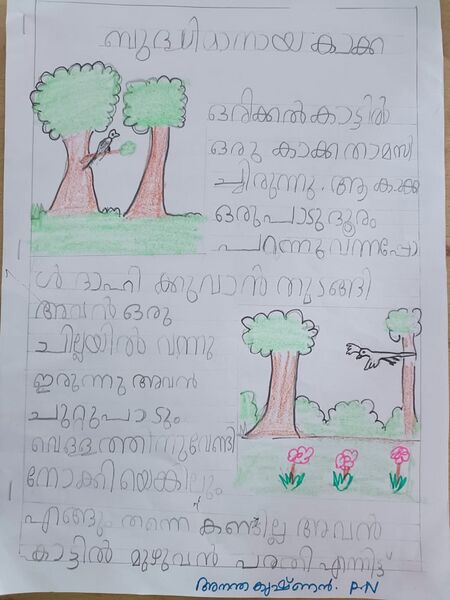 ബുദ്ധിമാനായ കാക്ക
ഒരിക്കൽ കാട്ടിൽ
ഒരു കാക്ക താമസി
ച്ചിരുന്നു. ആ കാക്ക
ഒരുപാടു ദൂരം
പറന്നു വന്നപ്പോ
ൾ ദാഹി ക്കുവാൻ തുടങ്ങി
അവൻ ഒരു
ചില്ലയിൽ വന്നു
ഇരുന്നു അവൻ
ചുറ്റുപാടും
വെള്ളത്തിനുവേണ്ടി
നോക്കിയെങ്കിലും
എങ്ങും തന്നെ കണ്ടില്ല അവൻ
കാട്ടിൽ മുഴുവൻ പരതി എന്നിട്ട്
അനന്തകൃഷ്ണൻ. P.N